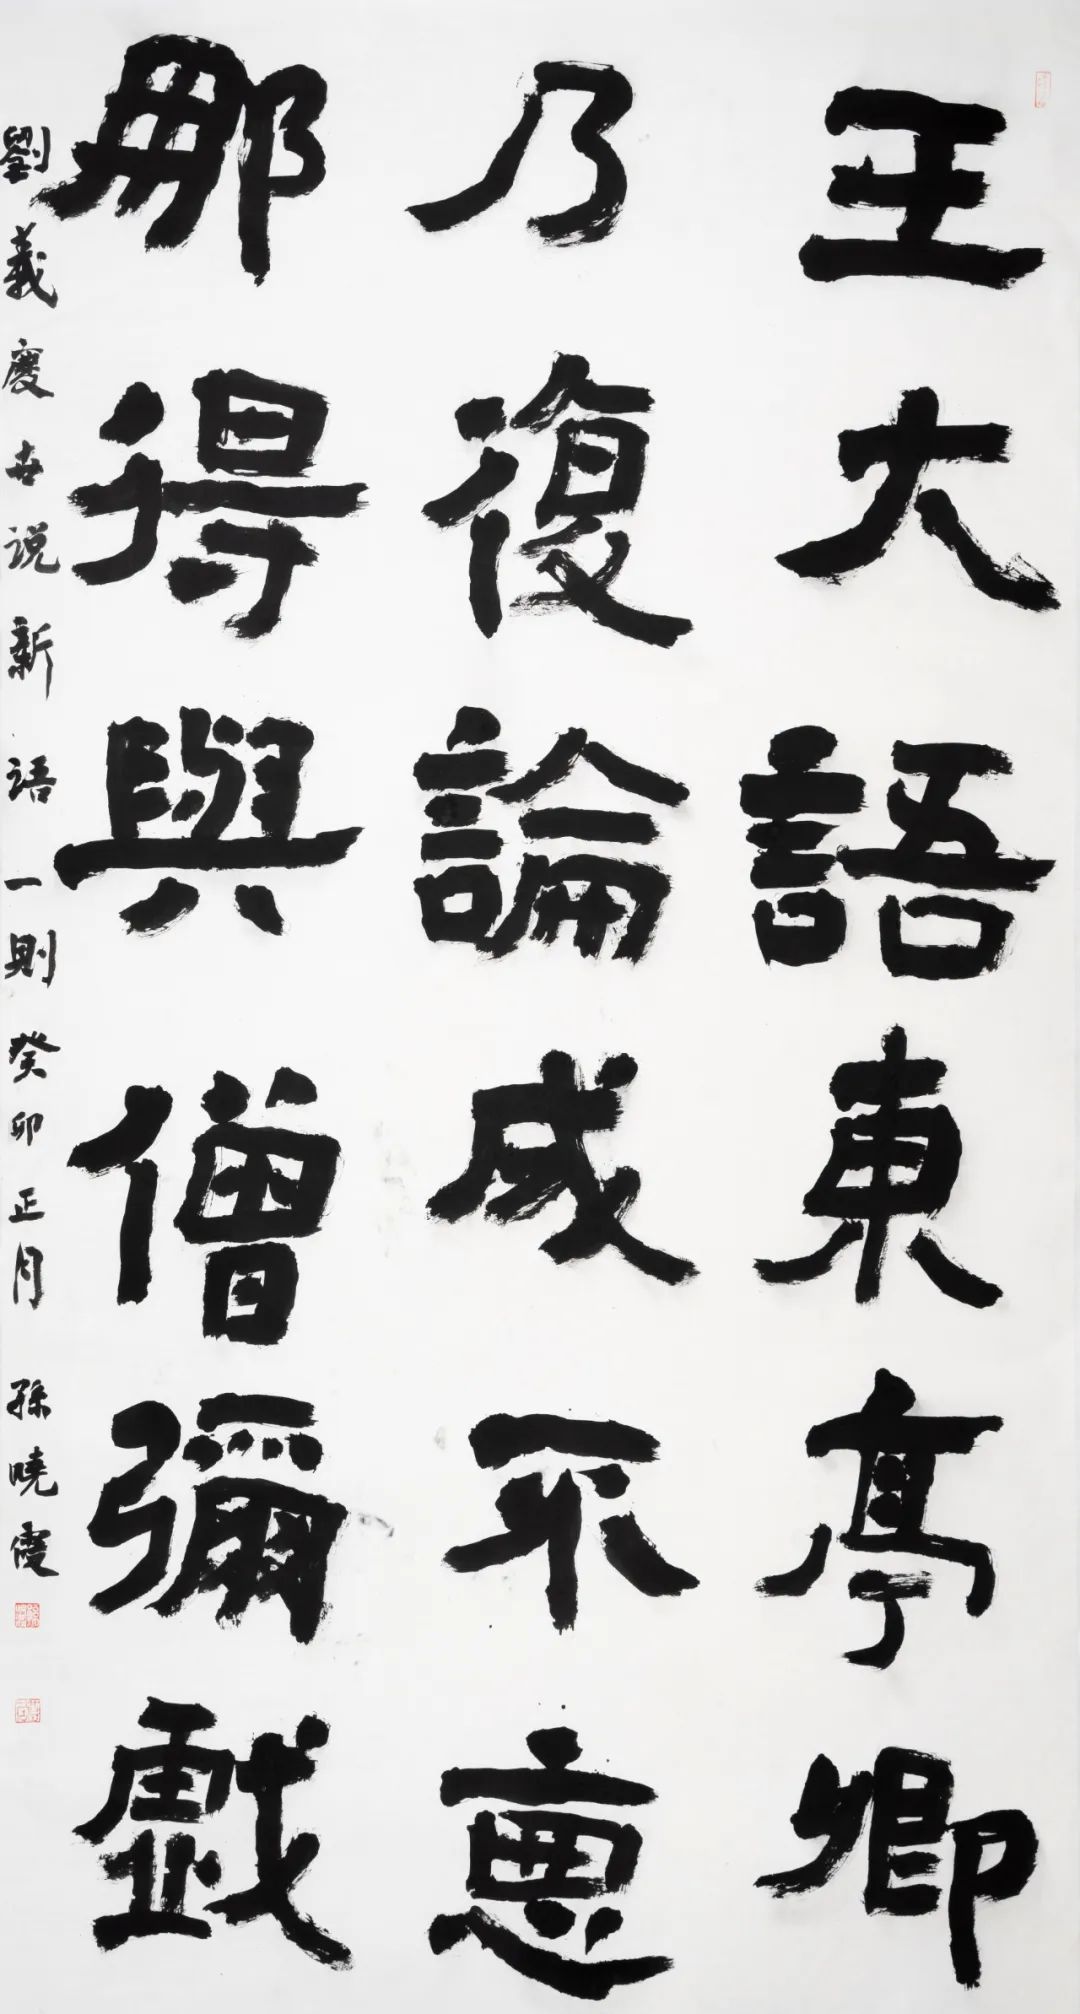 王大語東亭卿
乃復論成不惡
那得與僧彌戲
劉義慶世说新语一則癸卯正月孫曉